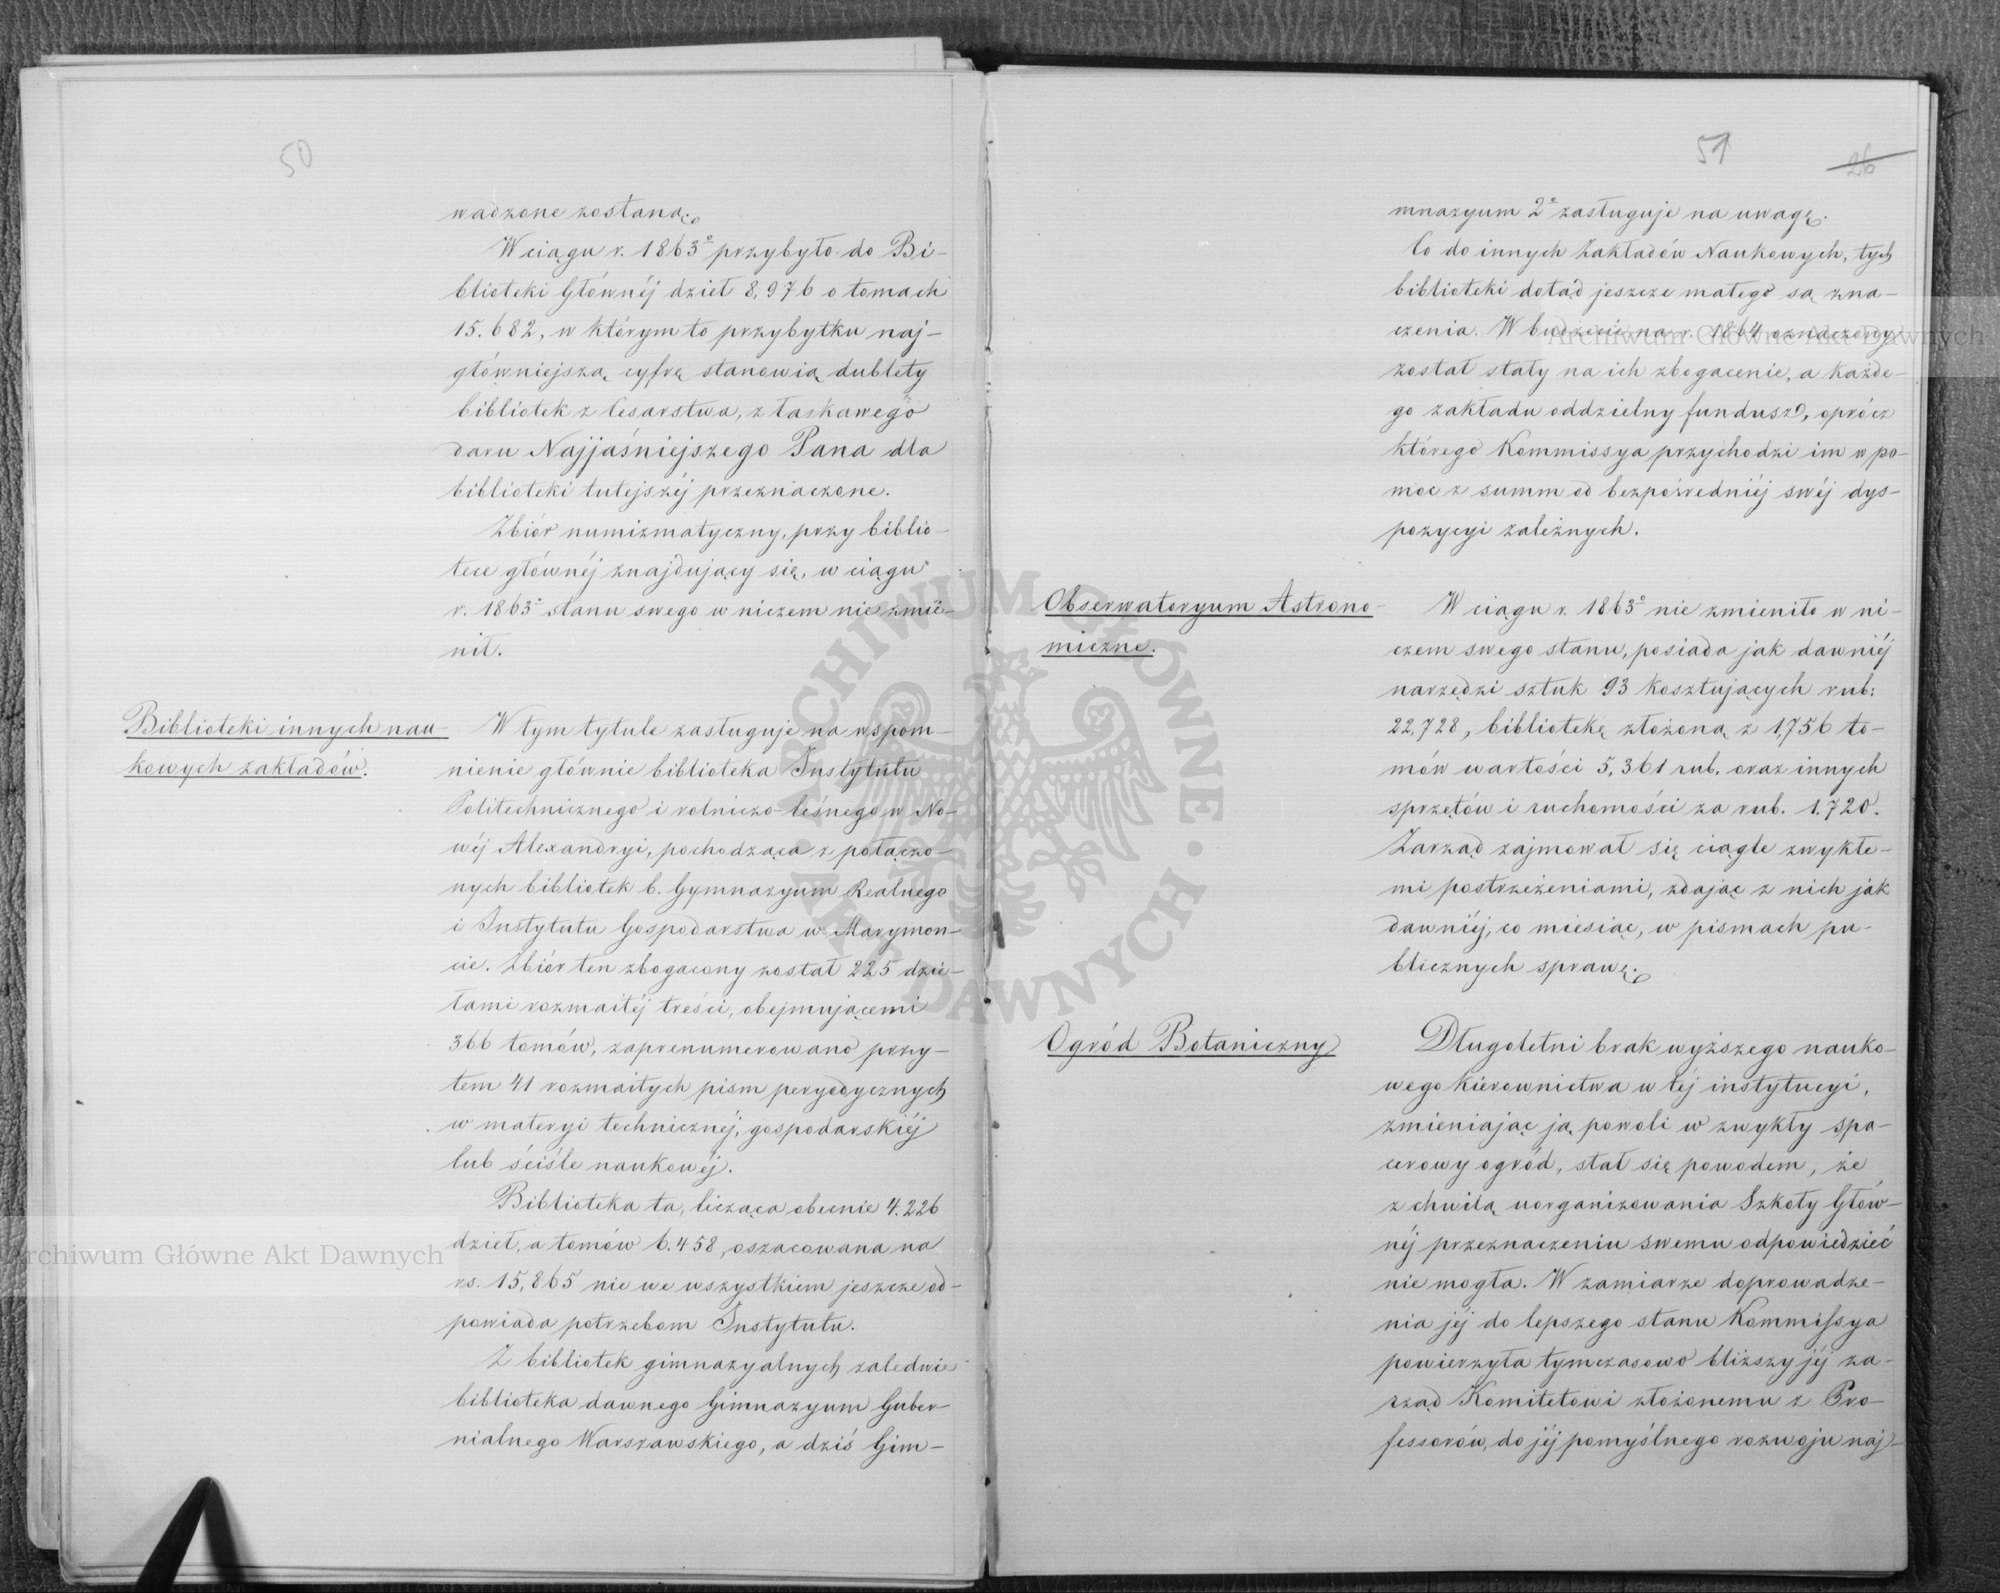 50
wadzone zostaną.
W ciągu r. 1863º przybyło do Bi-
blioteki Głównéj dzieł 8,976 o tomach
15.682, w którym to przybytku naj-
główniejszą cyfrę stanowią dublety
bibliotek z Cesarstwa, z łaskawego
daru Najjaśniejszego Pana dla
biblioteki tutejszéj przeznaczone.
Zbiór numizmatyczny, przy biblio-
tece głównéj znajdujący się, w ciągu
r. 1863º stanu swego w niczem nie zmie-
nił.
Biblioteki innych nau-
kowych zakładów.
W tym tytule zasługuje na wspom-
nienie głównie biblioteka Instytutu
Politechnicznego i rolniczo-leśnego w No-
wéj Alexandryi, pochodząca z połączo-
nych bibliotek b. Gymnazyum Realnego
i Instytutu Gospodarstwa w Marymon-
cie. Zbiór ten zbogacony został 225 dzie-
łami rozmaitéj treści, obejmującemi
366 tomów, zaprenumerowano przy-
tem 41 rozmaitych pism peryodycznych
w materyi technicznéj, gospodarskiéj
lub ściśle naukowéj.
Biblioteka ta, licząca obecnie 4.226
dzieł, a tomów 6.458, oszacowana na
rs. 15,865 nie we wszystkiem jeszcze od-
powiada potrzebom Instytutu.
Z bibliotek gimnazyalnych zaledwie
biblioteka dawnego Gimnazyum Guber-
nialnego Warszawskiego, a dziś Gim-
51
26
mnazyum 2º zasługuje na uwagę.
Co do innych Zakładów Naukowych, tych
biblioteki dotąd jeszcze małego są zna-
czenia. W budżecie na r. 1864 oznaczony
został stały na ich zbogacenie, a każde-
go zakładu oddzielny fundusz, oprócz
którego Kommissya przychodzi im w po-
moc z summ od bezpośredniéj swéj dys-
pozycyi zależnych.
Obserwatoryum Astrono-
miczne.
W ciągu r. 1863º nie zmieniło w ni-
czem swego stanu, posiada jak dawniéj
narzędzi sztuk 93 kosztujących rub:
22,728, bibliotekę złożoną z 1,756 to-
mów wartości 5,361 rub. oraz innych
sprzętów i ruchomości za rub. 1.720.
Zarząd zajmował się ciągle zwykłe-
mi postrzeżeniami, zdając z nich jak
dawniéj, co miesiąc, w pismach pu-
blicznych sprawę.
Ogród Botaniczny
Długoletni brak wyższego nauko-
wego kierownictwa w téj instytucyi,
zmieniając ją powoli w zwykły spa-
cerowy ogród, stał się powodem, że
z chwilą uorganizowania Szkoły Głów-
néj przeznaczeniu swemu odpowiedzieć
nie mogła. W zamiarze doprowadze-
nia jéj do lepszego stanu Kommissya
powierzyła tymczasowo bliższy jéj za-
rząd Komitetowi złożonemu z Pro-
fessorów, do jéj pomyślnego rozwoju naj-
Archiwum Główne Akt Dawnych
Archiwum Główne Akt Dawnych
ARCHIWUM GŁÓWNE · AKT DAWNYCH ·